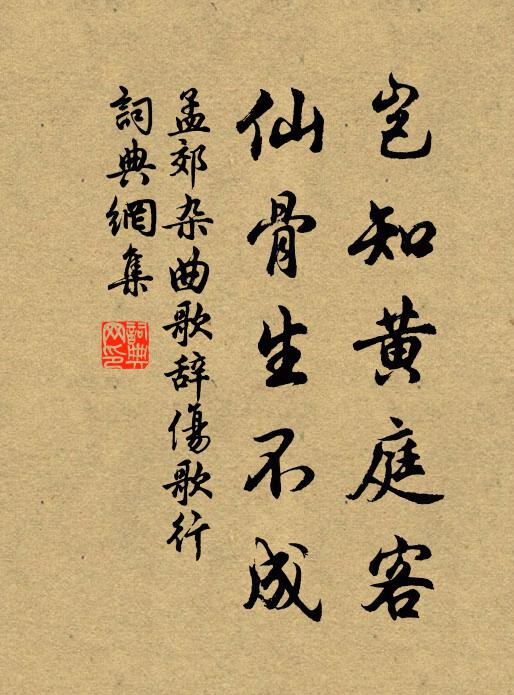 岂知黄庭客
仙骨生不成
孟郊杂曲歌辞傷歌行
詞典網集
詞典网印